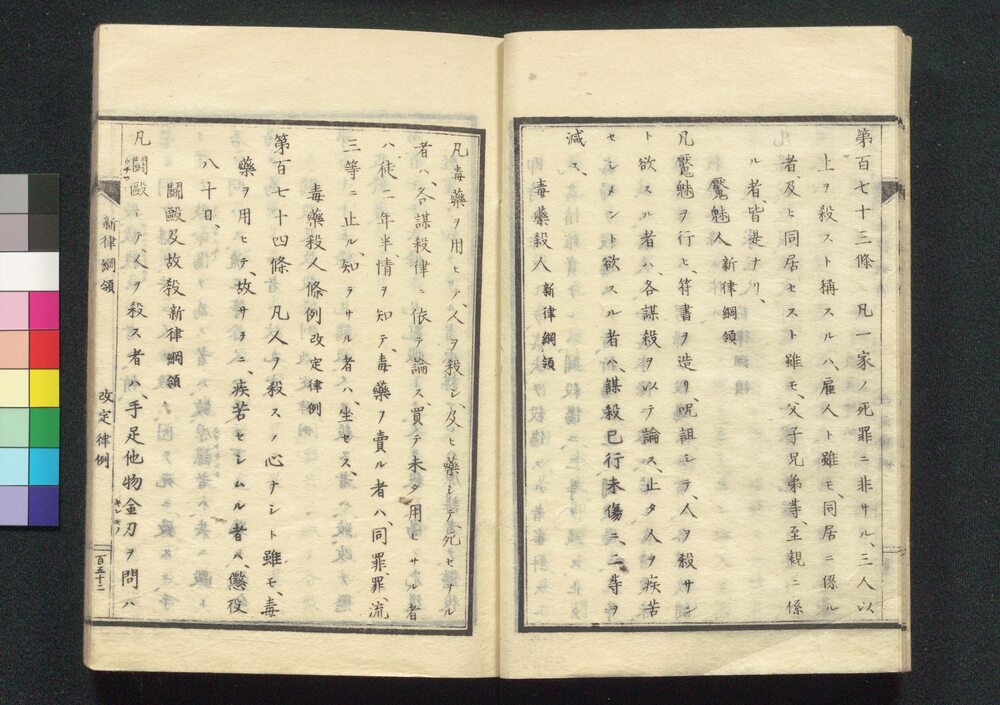 第百七十三條　凡一家ノ死罪ニ非サル、三人以
上ヲ殺スト稱スルハ、雇人ト雖モ、同居ニ係ル
者、及ヒ同居セスト雖モ、父子兄弟等、至親ニ係
ル者、皆是ナリ、
魘魅人 新律綱領
凡魘魅ヲ行ヒ、符書ヲ造リ、呪詛シテ、人ヲ殺サン
ト欲スル者ハ、各謀殺ヲ以テ論ス、止タ人ヲ疾苦
セシメント欲スル者ハ、謀殺已行未傷ニ、二等ヲ
減ス、
毒藥殺人 新律綱領
凡毒藥ヲ用ヒテ、人ヲ殺シ、及ヒ藥シテ死セサル
者ハ、各謀殺律ニ依テ論ス、買テ未タ用ヒサル者
ハ、徒二年半、情ヲ知テ、毒藥ヲ賣ル者ハ、同罪、罪、流
三等ニ止ル、知ラサル者ハ、坐セス、
毒藥殺人條例 改定律例
第百七十四條　凡人ヲ殺スノ心ナシト雖モ、毒
藥ヲ用ヒテ、故サラニ、疾苦セシムル者ハ、懲役
八十日、
鬪毆及故殺 新律綱領
凡鬪毆シテ、人ヲ殺ス者ハ、手足他物金刃ヲ問ハ
新律綱領
改定律例
百五十二